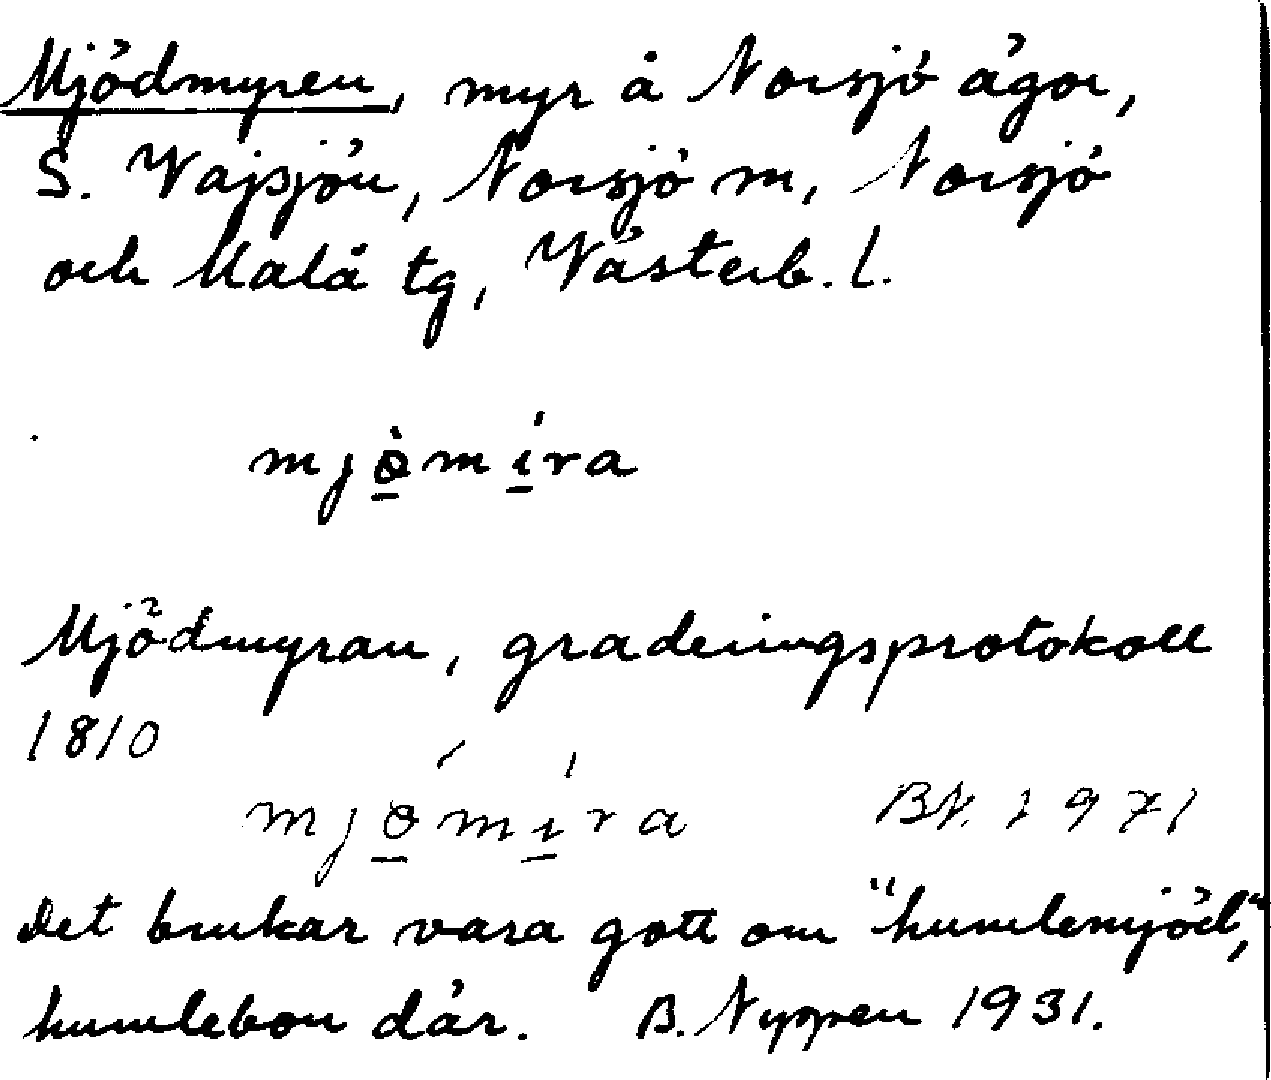 Mjödmyren, myr å Norsjö ägor,
S. Vajsjön, Norsjö sn, Norsjö
och Malå tg, Västerb. l.
mjò̱mí̱ra
Mjödmyran, graderingsprotokoll
1810
mjó̱mí̱ra BN. 1971
Det brukar vara gott om "humlemjöd",
humlebon där. B. Nyppen 1931.